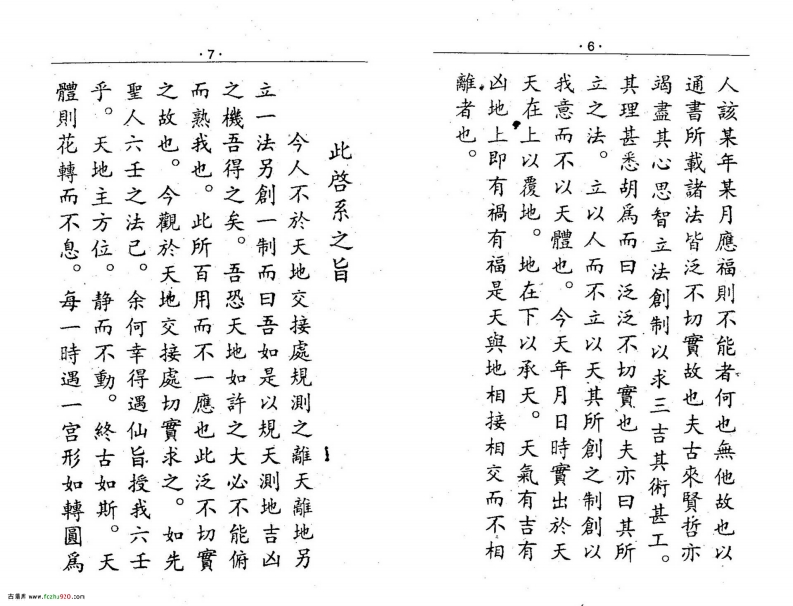 ·6·
人該某年某月應福則不能者何也無他故也以
通書所載諸法皆泛不切實故也夫古來賢哲亦
竭盡其心思智立法創制以求三吉其術甚工。
其理甚悉胡為而曰泛泛不切實也夫亦曰其所
立之法。立以人而不立以天其所創之制創以
我意而不以天體也。今天年月日時實出於天
天在上以覆地。地在下以承天。天氣有吉有
凶地上即有禍有福是天與地相接相交而不相
離者也。
·7·
此啓系之旨
今人不於天地交接處規測之離天離地另
立一法另創一制而曰吾如是以規天測地吉凶
之機吾得之矣。吾恐天地如許之大必不能俯
而熟我也。此所百用而不一應也此泛不切實
之故也。今觀於天地交接處切實求之。如先
聖人六壬之法已。余何幸得遇仙旨授我六壬
乎。天地主方位。靜而不動。終古如斯。天
體則花轉而不息。每一時遇一宮形如轉圓爲
古籍库 www.fczhu920.com